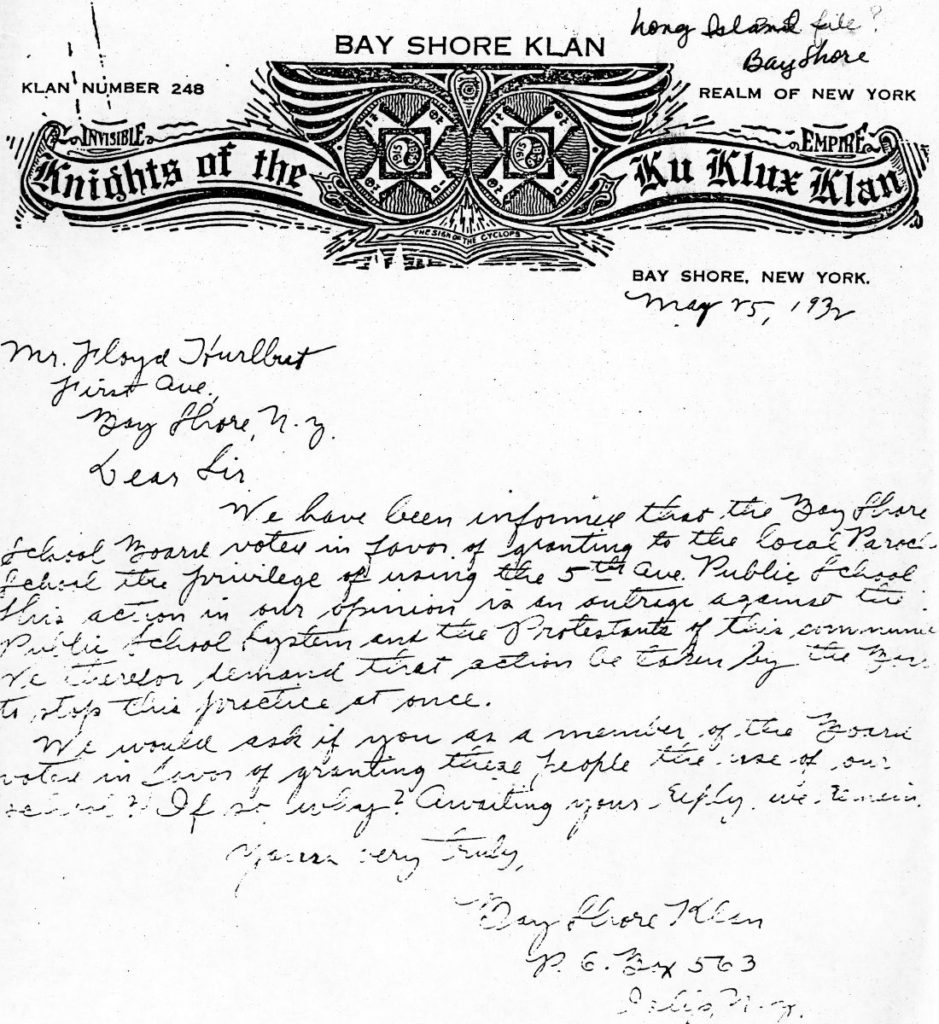 Long Island file?
Bay Shore
BAY SHORE KLAN
KLAN NUMBER 248
REALM OF NEW YORK
INVISIBLE
EMPIRE
Knights of the
Ku Klux Klan
THE SIGN OF THE CYCLOPS
BAY SHORE, NEW YORK.
May 25, 1932
Mr. Floyd Hurlbut
First Ave.,
Bay Shore, N.Y.
Dear Sir
We have been informed that the Bay Shore
School Board voted in favor of granting to the local Paroch
School the privilege of using the 5th Ave. Public School
This action in our opinion is an outrage against the
Public School System and the Protestants of this commun
We therefor demand that action be taken by the
to stop this practice at once.
We would ask if you as a member of the Board
voted in favor of granting these people the use of our
school? If so why? Awaiting your reply, we remain
Yours very truly,
Bay Shore Klan
P. O. Box 563
Islip, N.Y.